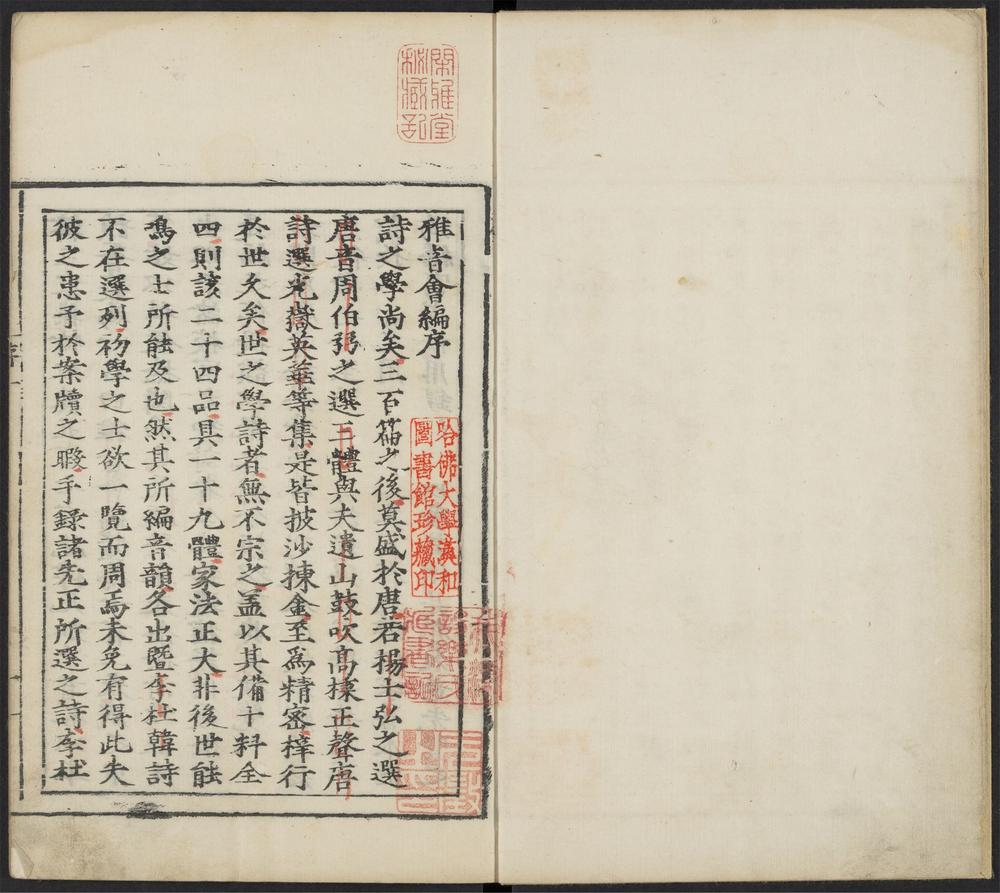 雅音會編序
詩之學尚矣三百篇之後莫盛於唐若楊士弘之選
唐音周伯弜之選三體與夫遺山鼓吹高棅正聲唐
詩選光嶽英華等集是皆披沙揀金至爲精密梓行
於世久矣世之學詩者無不宗之盖以其備十科全
四則該二十四品具一十九體家法正大非後世能
鳴之士所能及也然其所編音韻各出暨李杜韓詩
不在選列初學之士欲一覽而周焉未免有得此失
彼之患予於案牘之暇手錄諸先正所選之詩李杜
閑雅堂
秘藏記
哈佛大學漢和
圖書館珍藏印
序